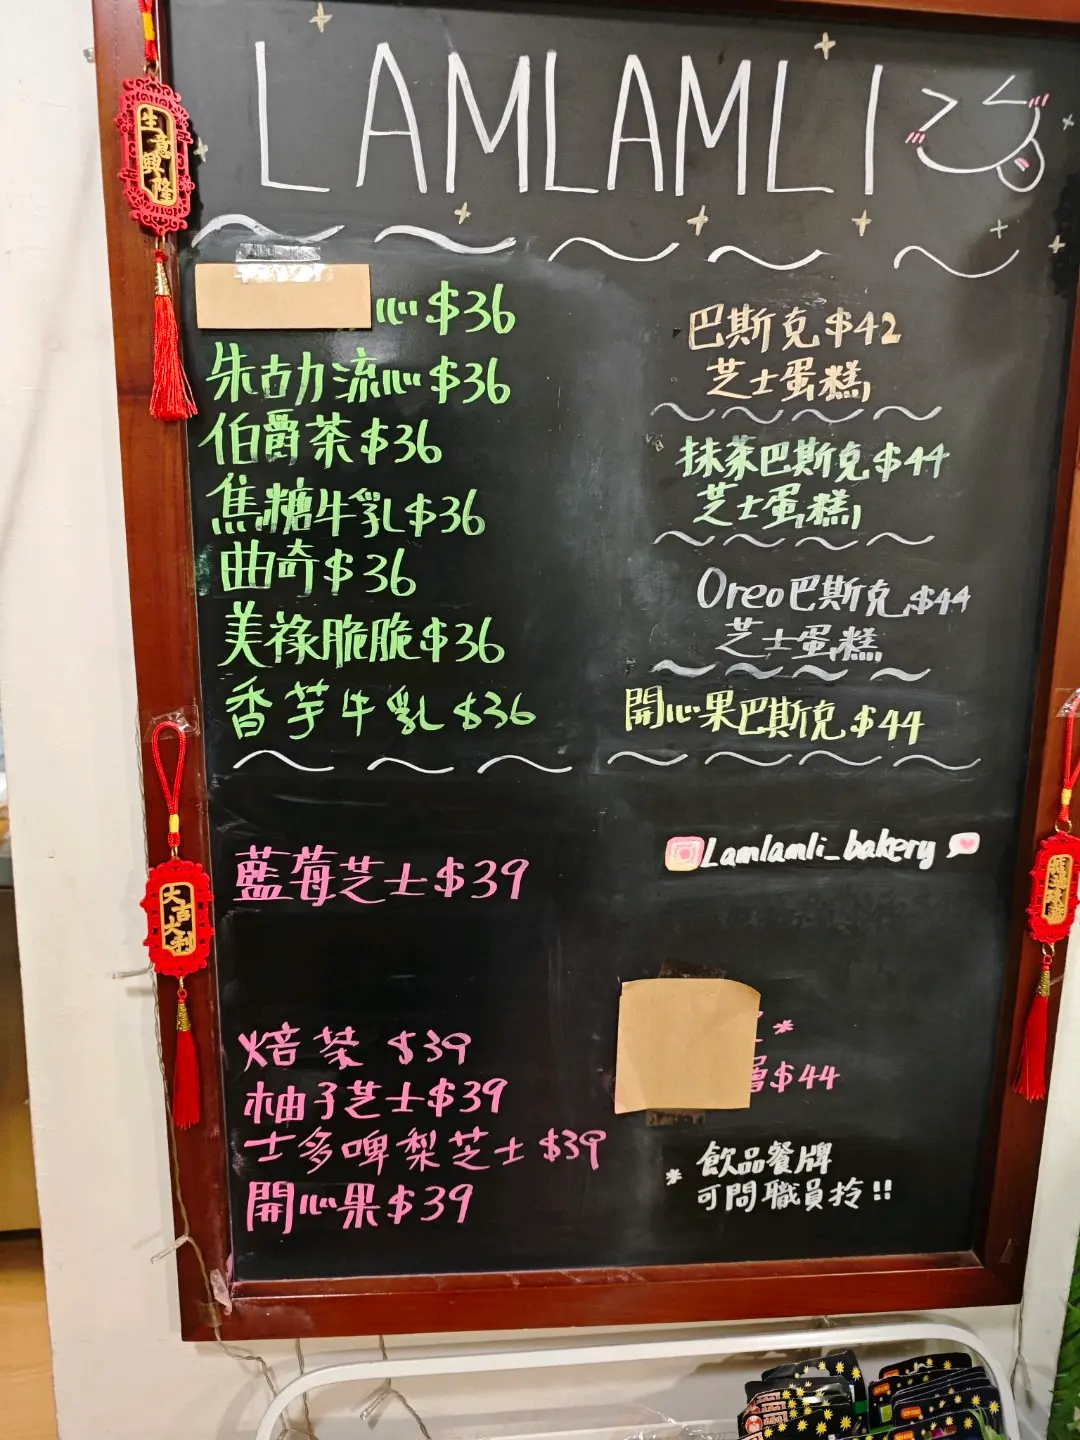 LAMLAMLI
生意興隆
心 $36
朱古力流心 $36
伯爵茶 $36
焦糖牛乳 $36
曲奇 $36
美祿脆脆 $36
香芋牛乳 $36
藍莓芝士 $39
焙茶 $39
柚子芝士 $39
士多啤梨芝士 $39
開心果 $39
大吉大利
巴斯克 $42
芝士蛋糕
抹茶巴斯克 $44
芝士蛋糕
Oreo巴斯克 $44
芝士蛋糕
開心果巴斯克 $44
Lamlamli_bakery
*
層 $44
* 飲品餐牌
可問職員拎!!